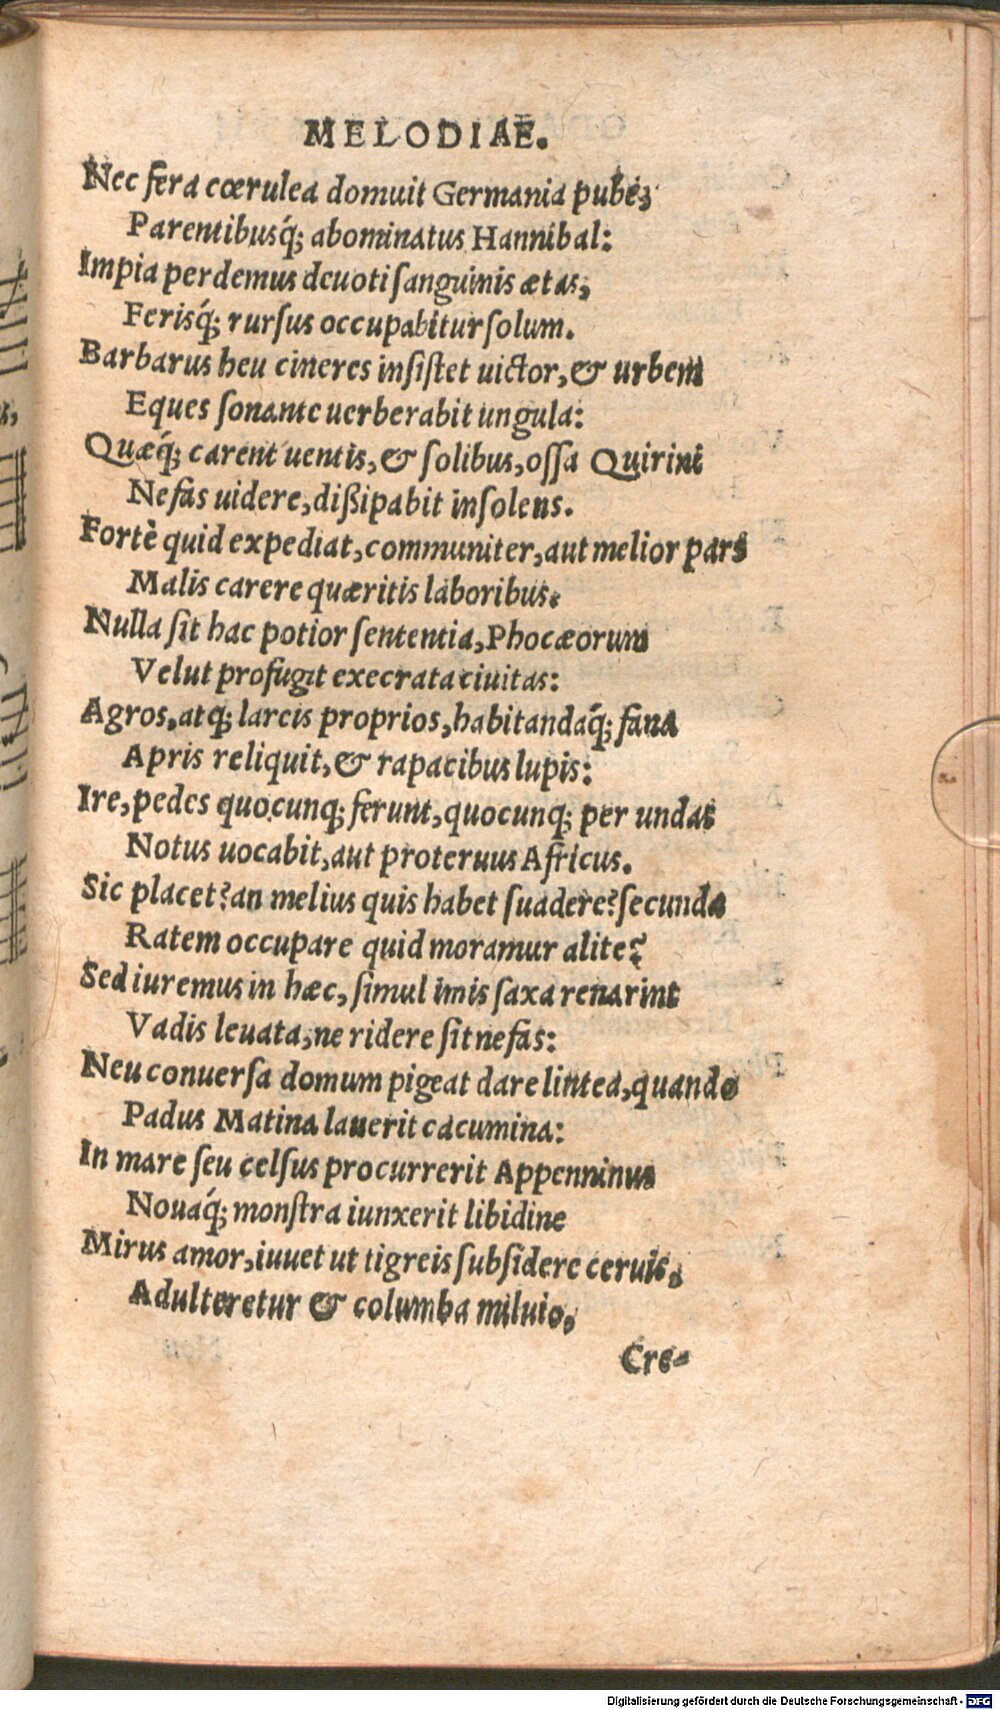 MELODIAE.
Nec fera cœrulea domuit Germania pube,
Parentibusq́; abominatus Hannibal:
Impia perdemus deuoti sanguinis ætas,
Ferisq́; rursus occupabitur solum.
Barbarus heu cineres insistet uictor, & urbem
Eques sonante uerberabit ungula:
Quæq́; carent uentis, & solibus, ossa Quirini
Nefas uidere, dißipabit insolens.
Fortè quid expediat, communiter, aut melior pars
Malis carere quæritis laboribus.
Nulla sit hac potior sententia, Phocæorum
Velut profugit execrata ciuitas:
Agros, atq; larcis proprios, habitandaq́; fana
Apris reliquit, & rapacibus lupis:
Ire, pedes quocunq; ferunt, quocunq; per undas
Notus uocabit, aut proteruus Africus.
Sic placet? an melius quis habet suadere? secunda
Ratem occupare quid moramur alite?
Sed iuremus in hæc, simul imis saxa renarint
Vadis leuata, ne ridere sit nefas:
Neu conuersa domum pigeat dare lintea, quando
Padus Matina lauerit cacumina:
In mare seu celsus procurrerit Appenninus
Nouaq́; monstra iunxerit libidine
Mirus amor, iuuet ut tigreis subsidere ceruis,
Adulteretur & columba miluio,
Cre-
Digitalisierung gefördert durch die Deutsche Forschungsgemeinschaft - DFG